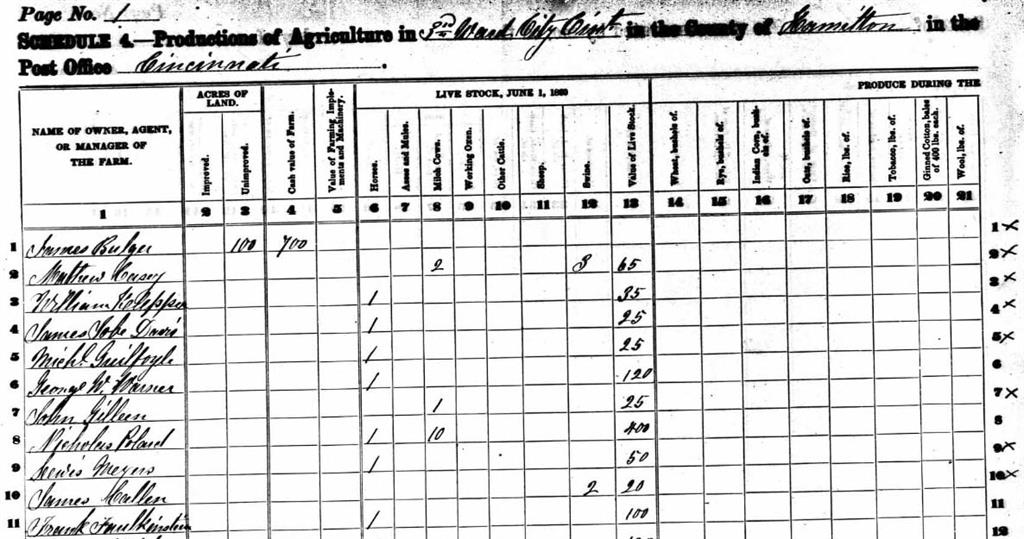 Page No. 1
SCHEDULE 4.—Productions of Agriculture in 3rd Ward City Cint in the County of Hamilton in the
Post Office Cincinnati.
NAME OF OWNER, AGENT, OR MANAGER OF THE FARM.
ACRES OF LAND.
Improved.
Unimproved.
Cash value of Farm.
Value of Farming Implements and Machinery.
LIVE STOCK, JUNE 1, 1860
Horses.
Asses and Mules.
Milch Cows.
Working Oxen.
Other Cattle.
Sheep.
Swine.
Value of Live Stock.
PRODUCE DURING THE
Wheat, bushels of.
Rye, bushels of.
Indian Corn, bushels of.
Oats, bushels of.
Rice, lbs. of.
Tobacco, lbs. of.
Ginned Cotton, bales of 400 lbs. each.
Wool, lbs. of.
1 2 3 4 5 6 7 8 9 10 11 12 13 14 15 16 17 18 19 20 21
1 James Bulger 100 700 1 x
2 Mathew Casey 2 3 65 2 x
3 William 1 35 3 x
4 James Jobe Davis 1 25 4 x
5 Michl. Guilfoyle 1 25 5 x
6 George W. Warner 1 120 6
7 John Gilleen 1 25 7 x
8 Nicholas Poland 1 10 400 8
9 Lewis Meyers 1 50 9 x
10 James Cullen 2 20 10 x
11 Frank Faulkinstein 1 100 11
12